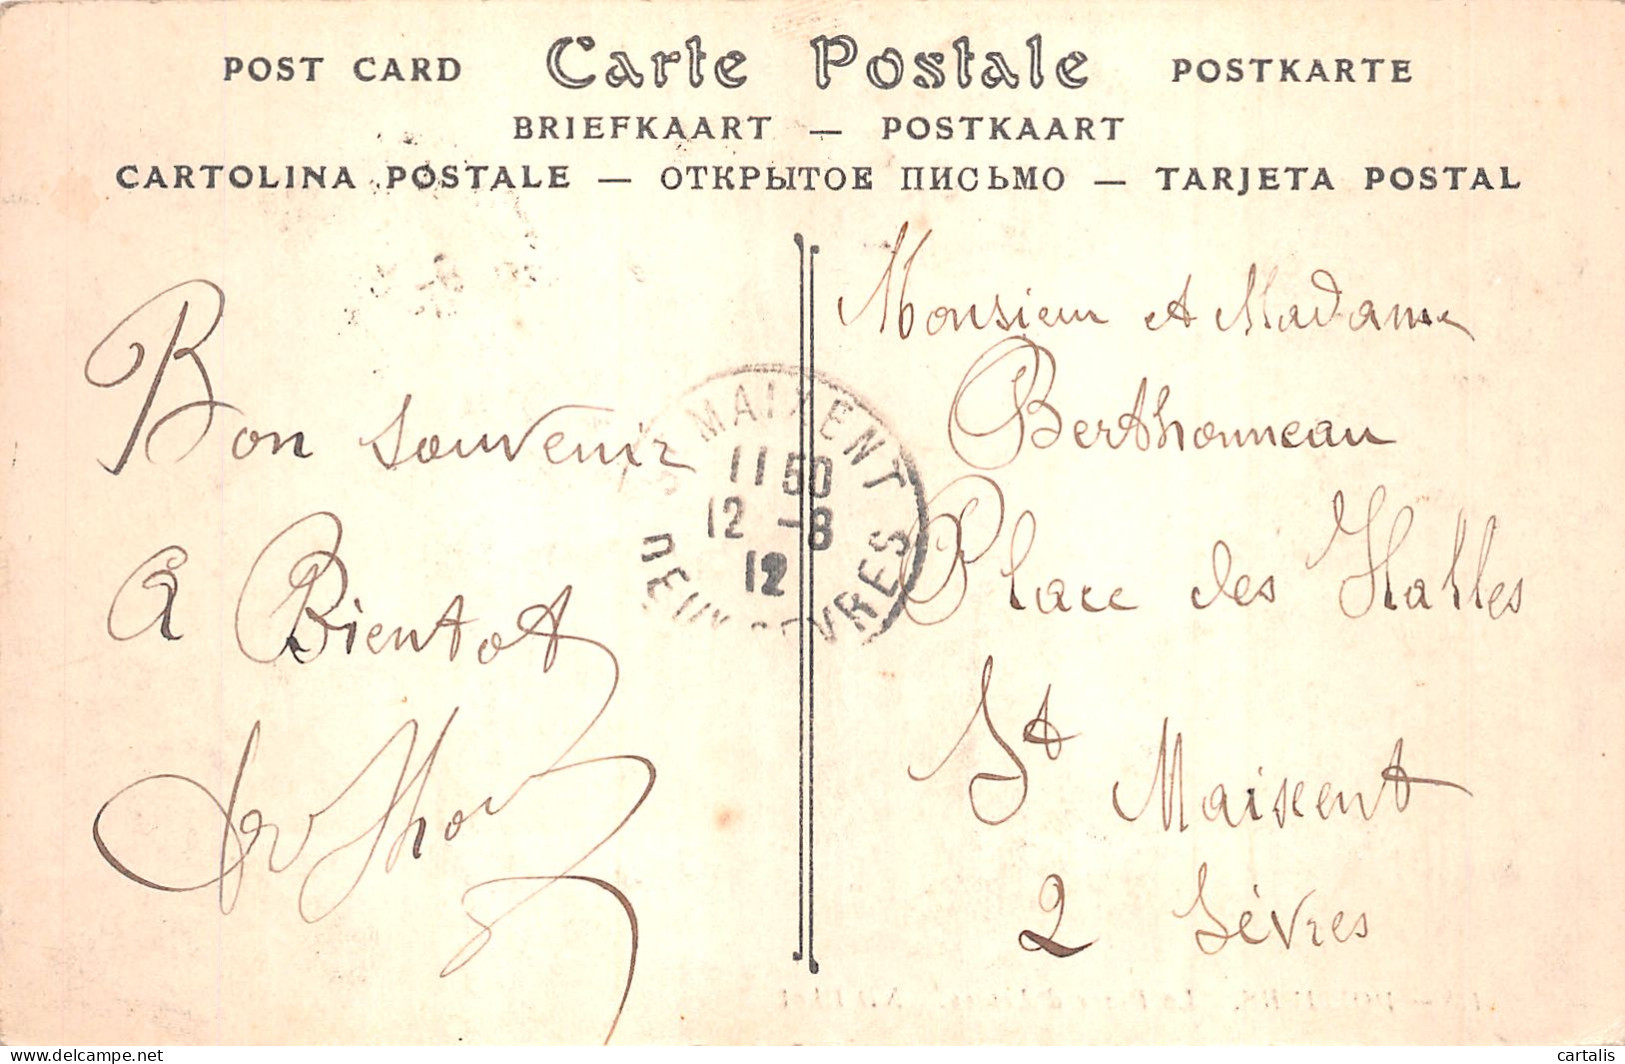 POST CARD Carte Postale POSTKARTE
BRIEFKAART — POSTKAART
CARTOLINA POSTALE — ОТКРЫТОЕ ПИСЬМО — TARJETA POSTAL
Bon souvenir
A Bientot
Monsieur et Madame
Berthonneau
Place des Halles
St Maixent
2 Sèvres
ST MAIXENT
11 50
12 -8
12
DEUX SEVRES
delcampe.net
cartalis